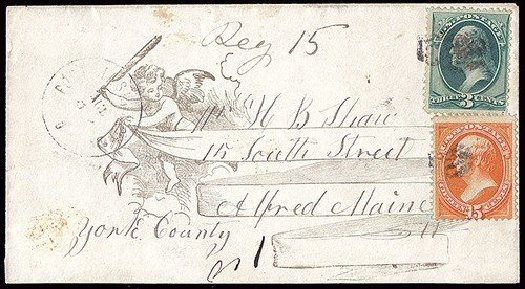 Reg 15
U.S. POSTAGE
THREE 3 CENTS
Mr H B Shaw
15 South Street
U.S. POSTAGE
15 CENTS
Alfred Maine
York County